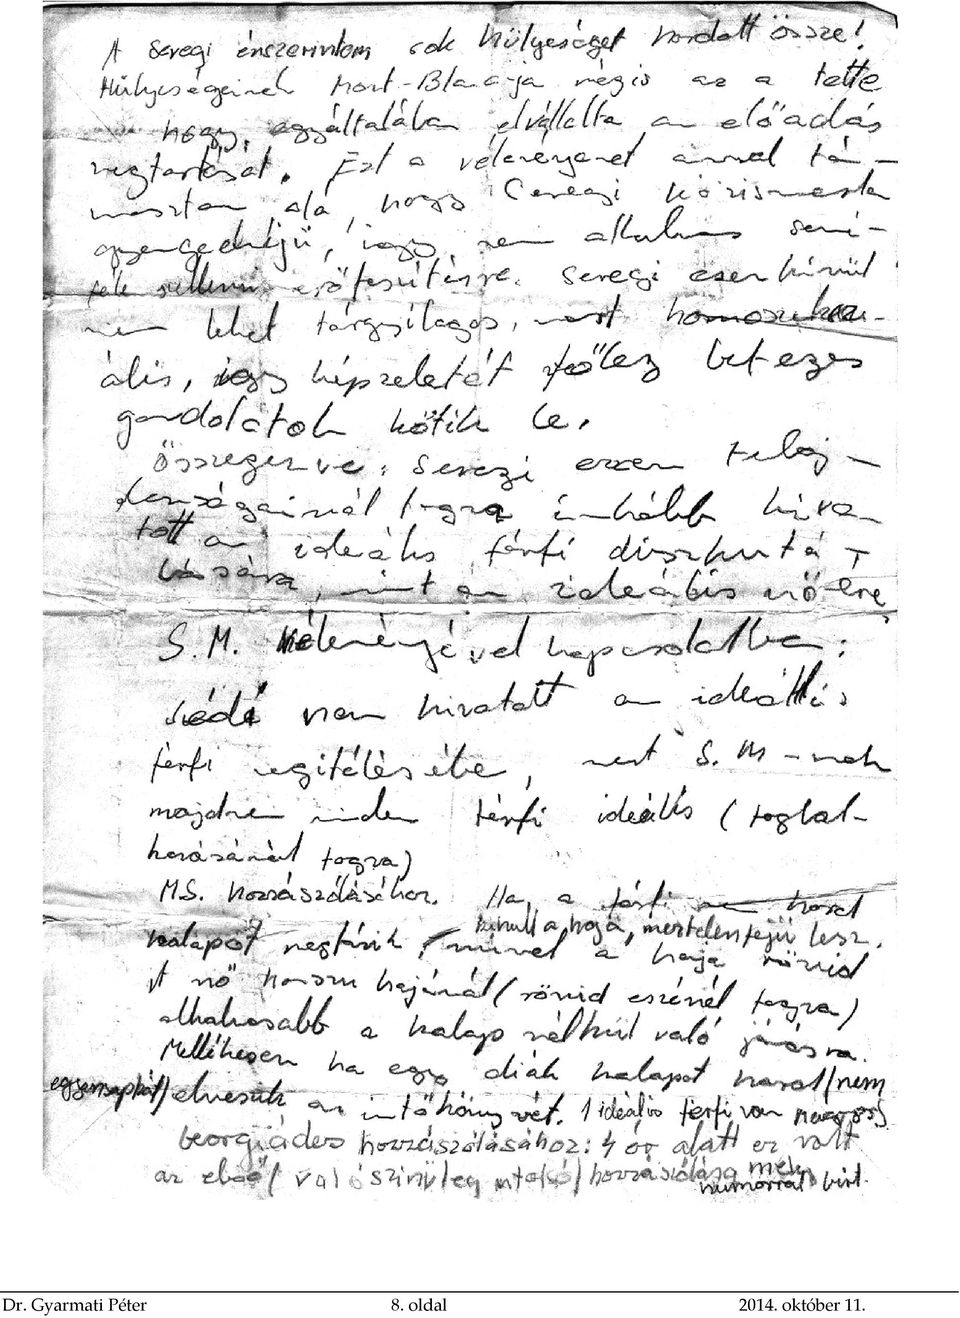 A Seregi énszerintem sok hülyeséget hordott össze!
Hülyeségeinek Mont-Blanc-ja mégis az a tette
hogy, egyáltalában elvállalta az előadás
megtartását. Ezt a véleményemet annal tá-
masztom alá, hogy Seregi közismerten
gyengeelméjü, így nem alkalmas semi-
féle szellemi erőfeszítésre. Seregi ezen kívül
nem lehet tárgyilagos, mert homoszexu-
ális, így képzeletét főleg beteges
gondolatok kötik le.
Összegezve: Seregi ezen tulaj-
donságainál fogva inkább hiva-
tott az ideális férfi diszkutá-
lására, mint az ideális nő-ére
S. M. véleményével kapcsolatba:
nem hivatott az ideális
férfi megitélésébe, mert S. M-nek
majdnem minden férfi ideális (foglal-
kozásánál fogva)
M.S. hozzászólásához. Ha a férfi hord
kalapot megfázik, kihull a haja, meztelenfejü lesz.
mivel a haja rövid
A nő hosszu hajánál (rövid eszénél fogva)
alkalmasabb a kalap nélkül való járásra.
Mellékesen ha egy diák kalapot hord/nem
egyensapkát/ elveszik az intőkönyvét. 1 ideális férfi van
Georgiádes hozzászólásához: 4 óra alatt ez volt
az első/ valószinüleg utolsó/ hozzászólása mely
humorral birt.
Dr. Gyarmati Péter 8. oldal 2014. október 11.